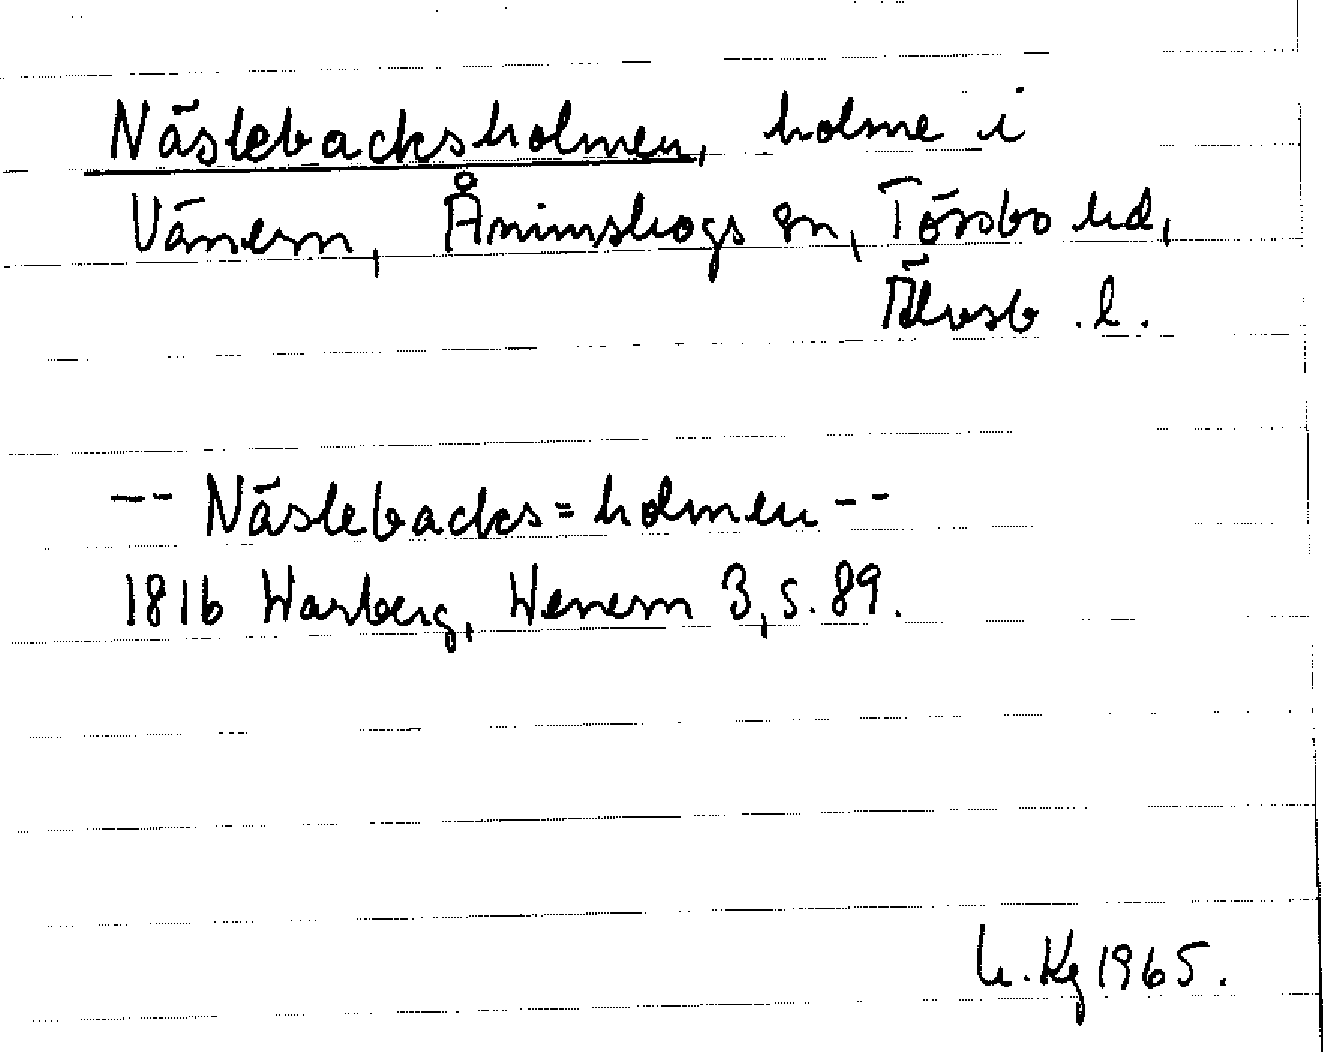 Nästebacksholmen, holme i
Vänern, Ånimskogs sn, Tössbo hd,
Älvsb. l.
-- Nästebacks=holmen --
1816 Warberg, Wenern 3, s. 89.
Kg 1965.